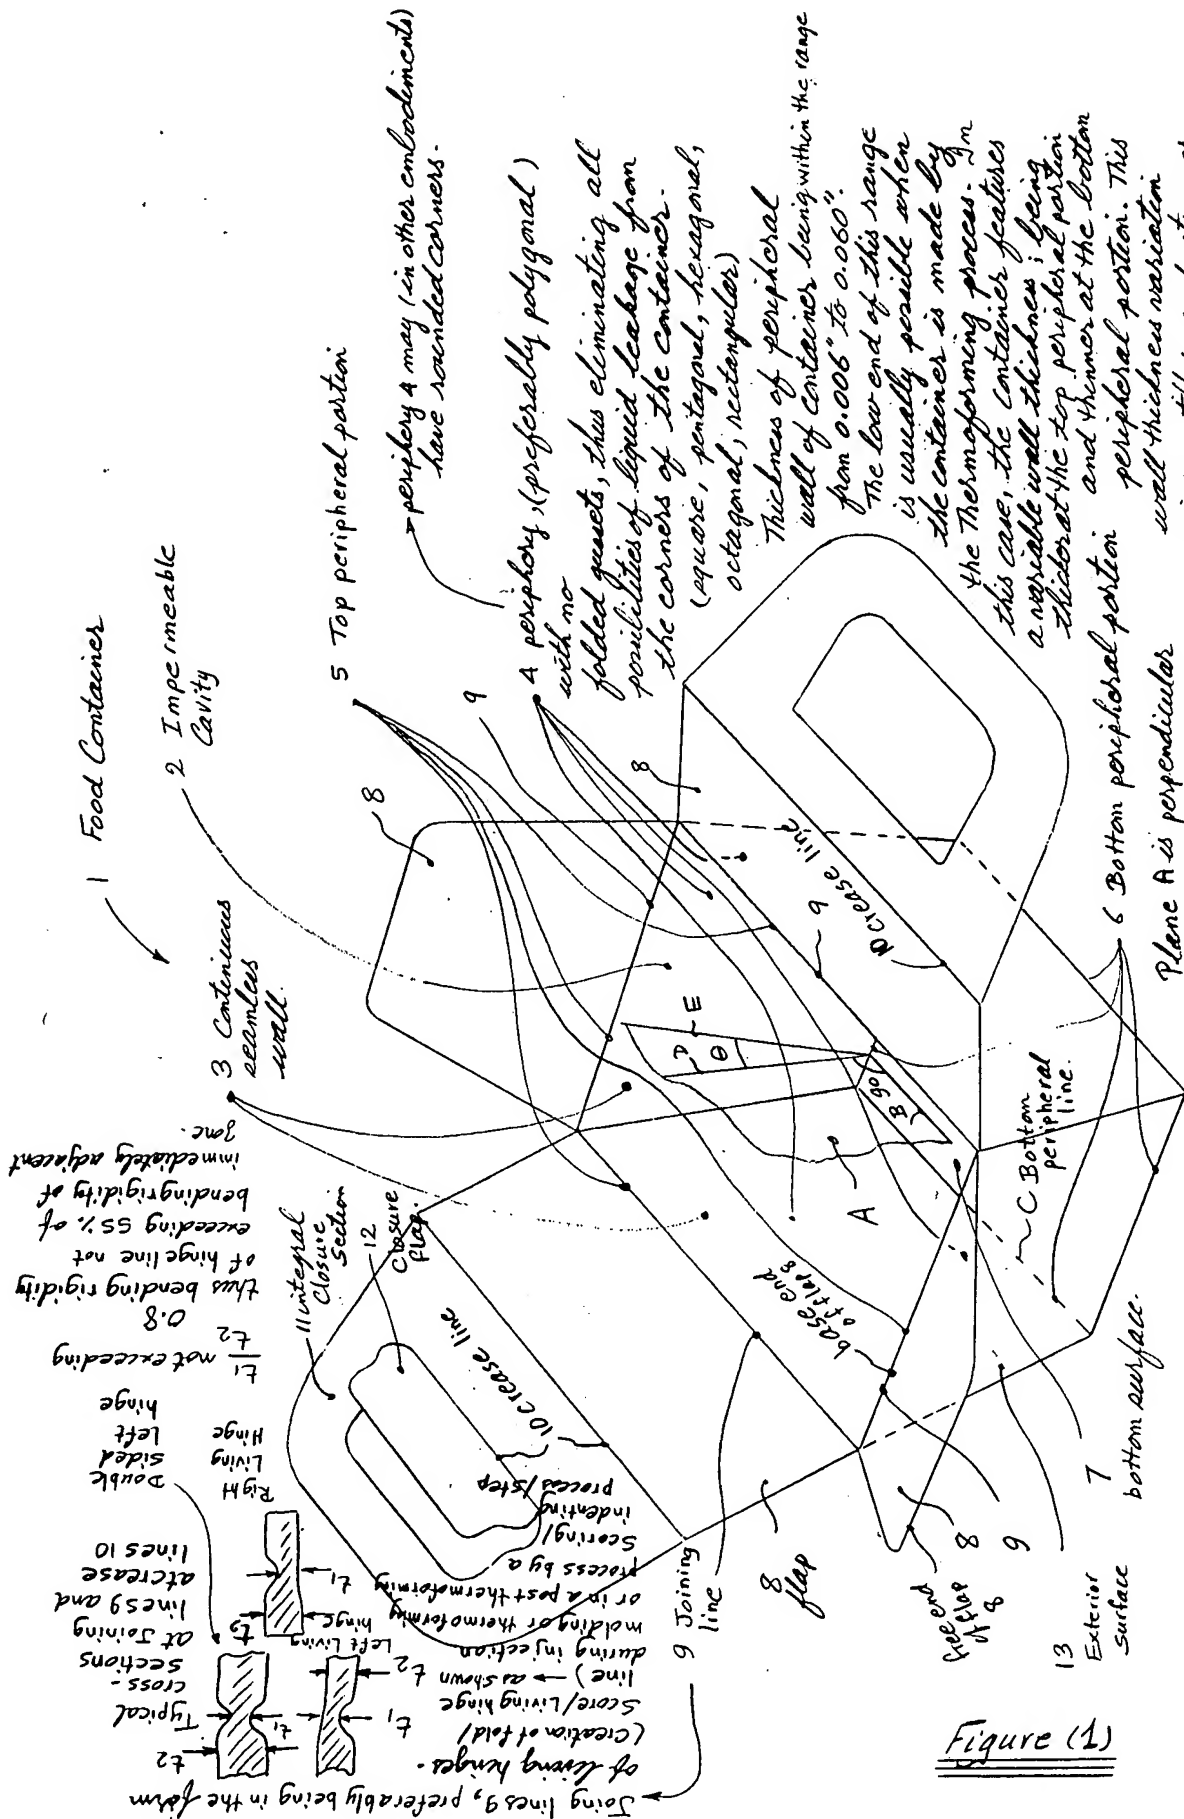 1 Food Container
2 Impermeable
Cavity
3 Continuous
seamless
wall.
5 Top peripheral portion
periphery 4 may (in other embodiments)
have rounded corners.
4 periphery, (preferably polygonal)
with no
folded gussets, thus eliminating all
possibilities of liquid leakage from
the corners of the container.
(square, pentagonal, hexagonal,
octagonal, rectangular)
Thickness of peripheral
wall of container being within the range
from 0.006" to 0.060".
The low end of this range
is usually possible when
the container is made by
the Thermoforming process. In
this case, the container features
a variable wall thickness; being
thicker at the top peripheral portion
and thinner at the bottom
peripheral portion. This
wall thickness variation
6 Bottom peripheral portion
Plane A is perpendicular
8
9
8
10 crease line
9
D
E
θ
B 90°
A
C Bottom
peripheral
line.
base end
of flap 8
11 integral
Closure
Section
12
Closure
flap.
10 crease line
9 Joining
line
8
flap
free end
of flap
8
8
9
13
Exterior
surface
7
bottom surface.
Joing lines 9, preferably being in the form
of living hinges.
(Creation of fold/
Score/Living hinge
line) → as shown
during injection
molding or thermoforming
or in a post thermoforming
process by a
Scoring/
indenting
process/step
Typical
cross-
sections
at Joining
lines 9 and
at crease
lines 10
t2
t1
t1
t2
Left Living
hinge
t2
t1
Right
Living
Hinge
Double
sided
left
hinge
t1/t2 not exceeding
0.8
thus bending rigidity
of hinge line not
exceeding 55% of
bending rigidity of
immediately adjacent
zone.
Figure (1)